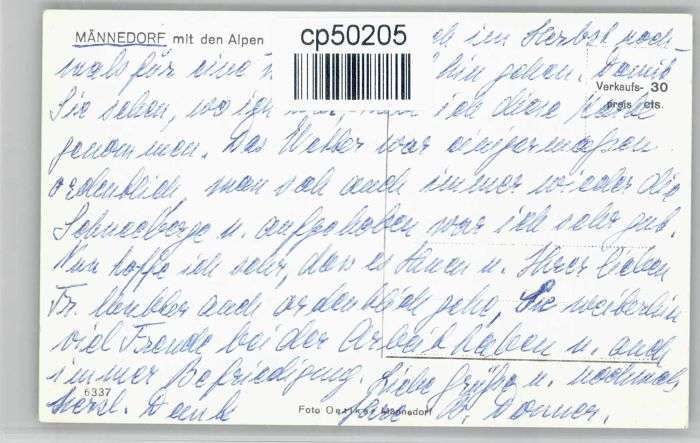 MÄNNEDORF mit den Alpen
cp50205
ich im Herbst noch-
mals für eine hin gehen. Damit
Verkaufs- 30
preis cts.
Sie sehen, wo ich war, habe ich diese Karte
genommen. Das Wetter war einigermaßen
ordentlich, man sah auch immer wieder die
Schneeberge u. aufgehoben war ich sehr gut.
Nun hoffe ich sehr, dass es Ihnen u. Ihrer lieben
Fr. Mutter auch ordentlich geht, Sie weiterhin
viel Freude bei der Arbeit haben u. auch
immer Befriedigung. Liebe Grüße u. nochmals
6337
herzl. Dank
Foto Oetiker Männedorf
Donner.